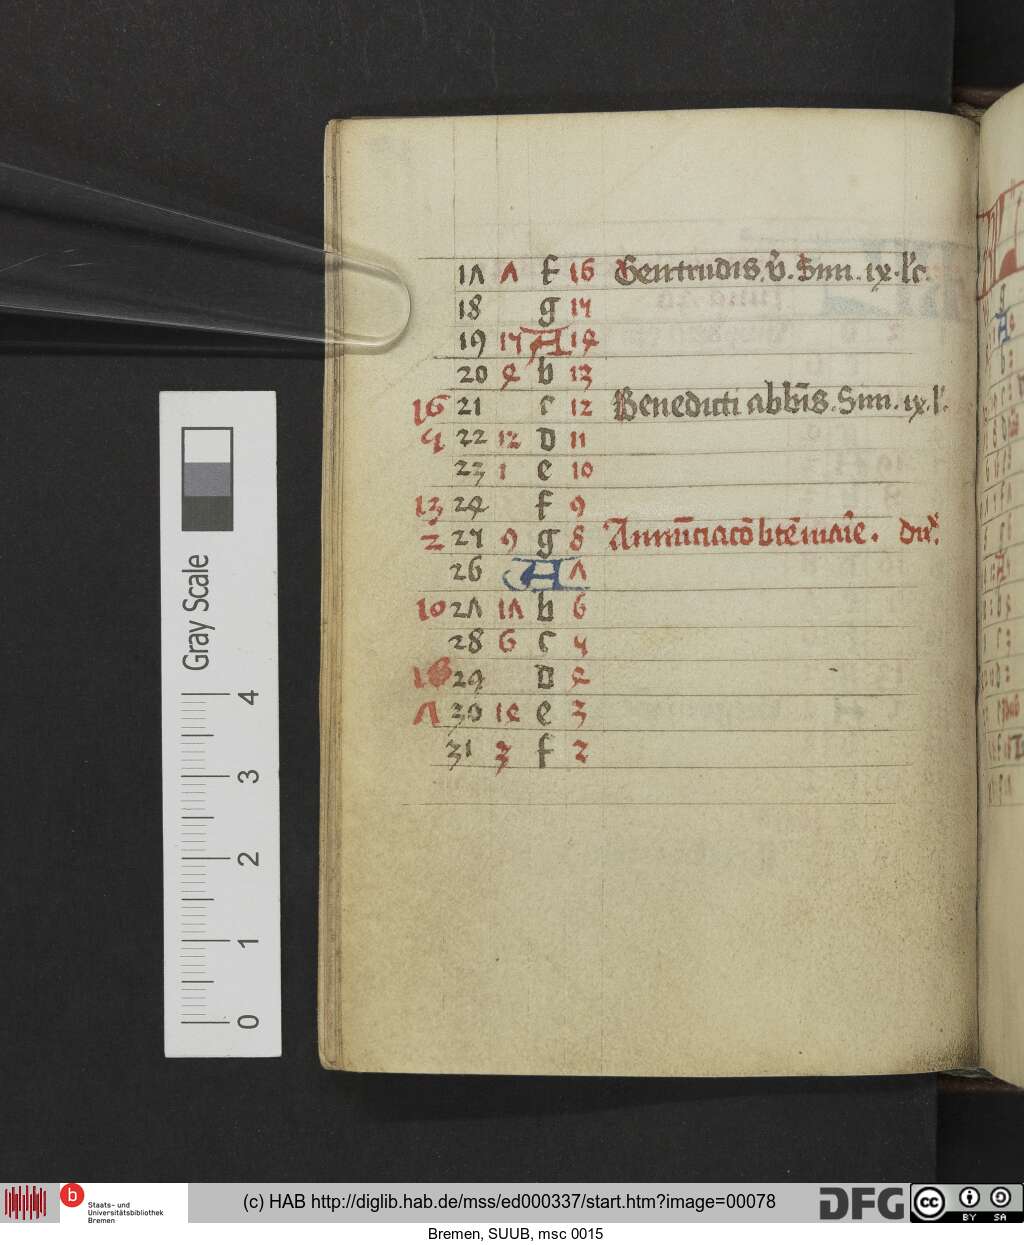 17 7 f 16 Gertrudis. v̄. Sim. ix. lc̄.
18 g 15
19 15 A 14
20 4 b 13
16 21 c 12 Benedicti abb̄is. Sim. ix. l̄.
5 22 12 d 11
23 1 e 10
13 24 f 9
2 25 9 g 8 Annūciacō btē marīe. du
26 A 7
10 27 17 b 6
28 6 c 5
18 29 d 4
7 30 14 e 3
31 3 f 2
Gray Scale
0 1 2 3 4
b Staats- und
Universitätsbibliothek
Bremen
(c) HAB http://diglib.hab.de/mss/ed000337/start.htm?image=00078
DFG
cc BY SA
Bremen, SUUB, msc 0015